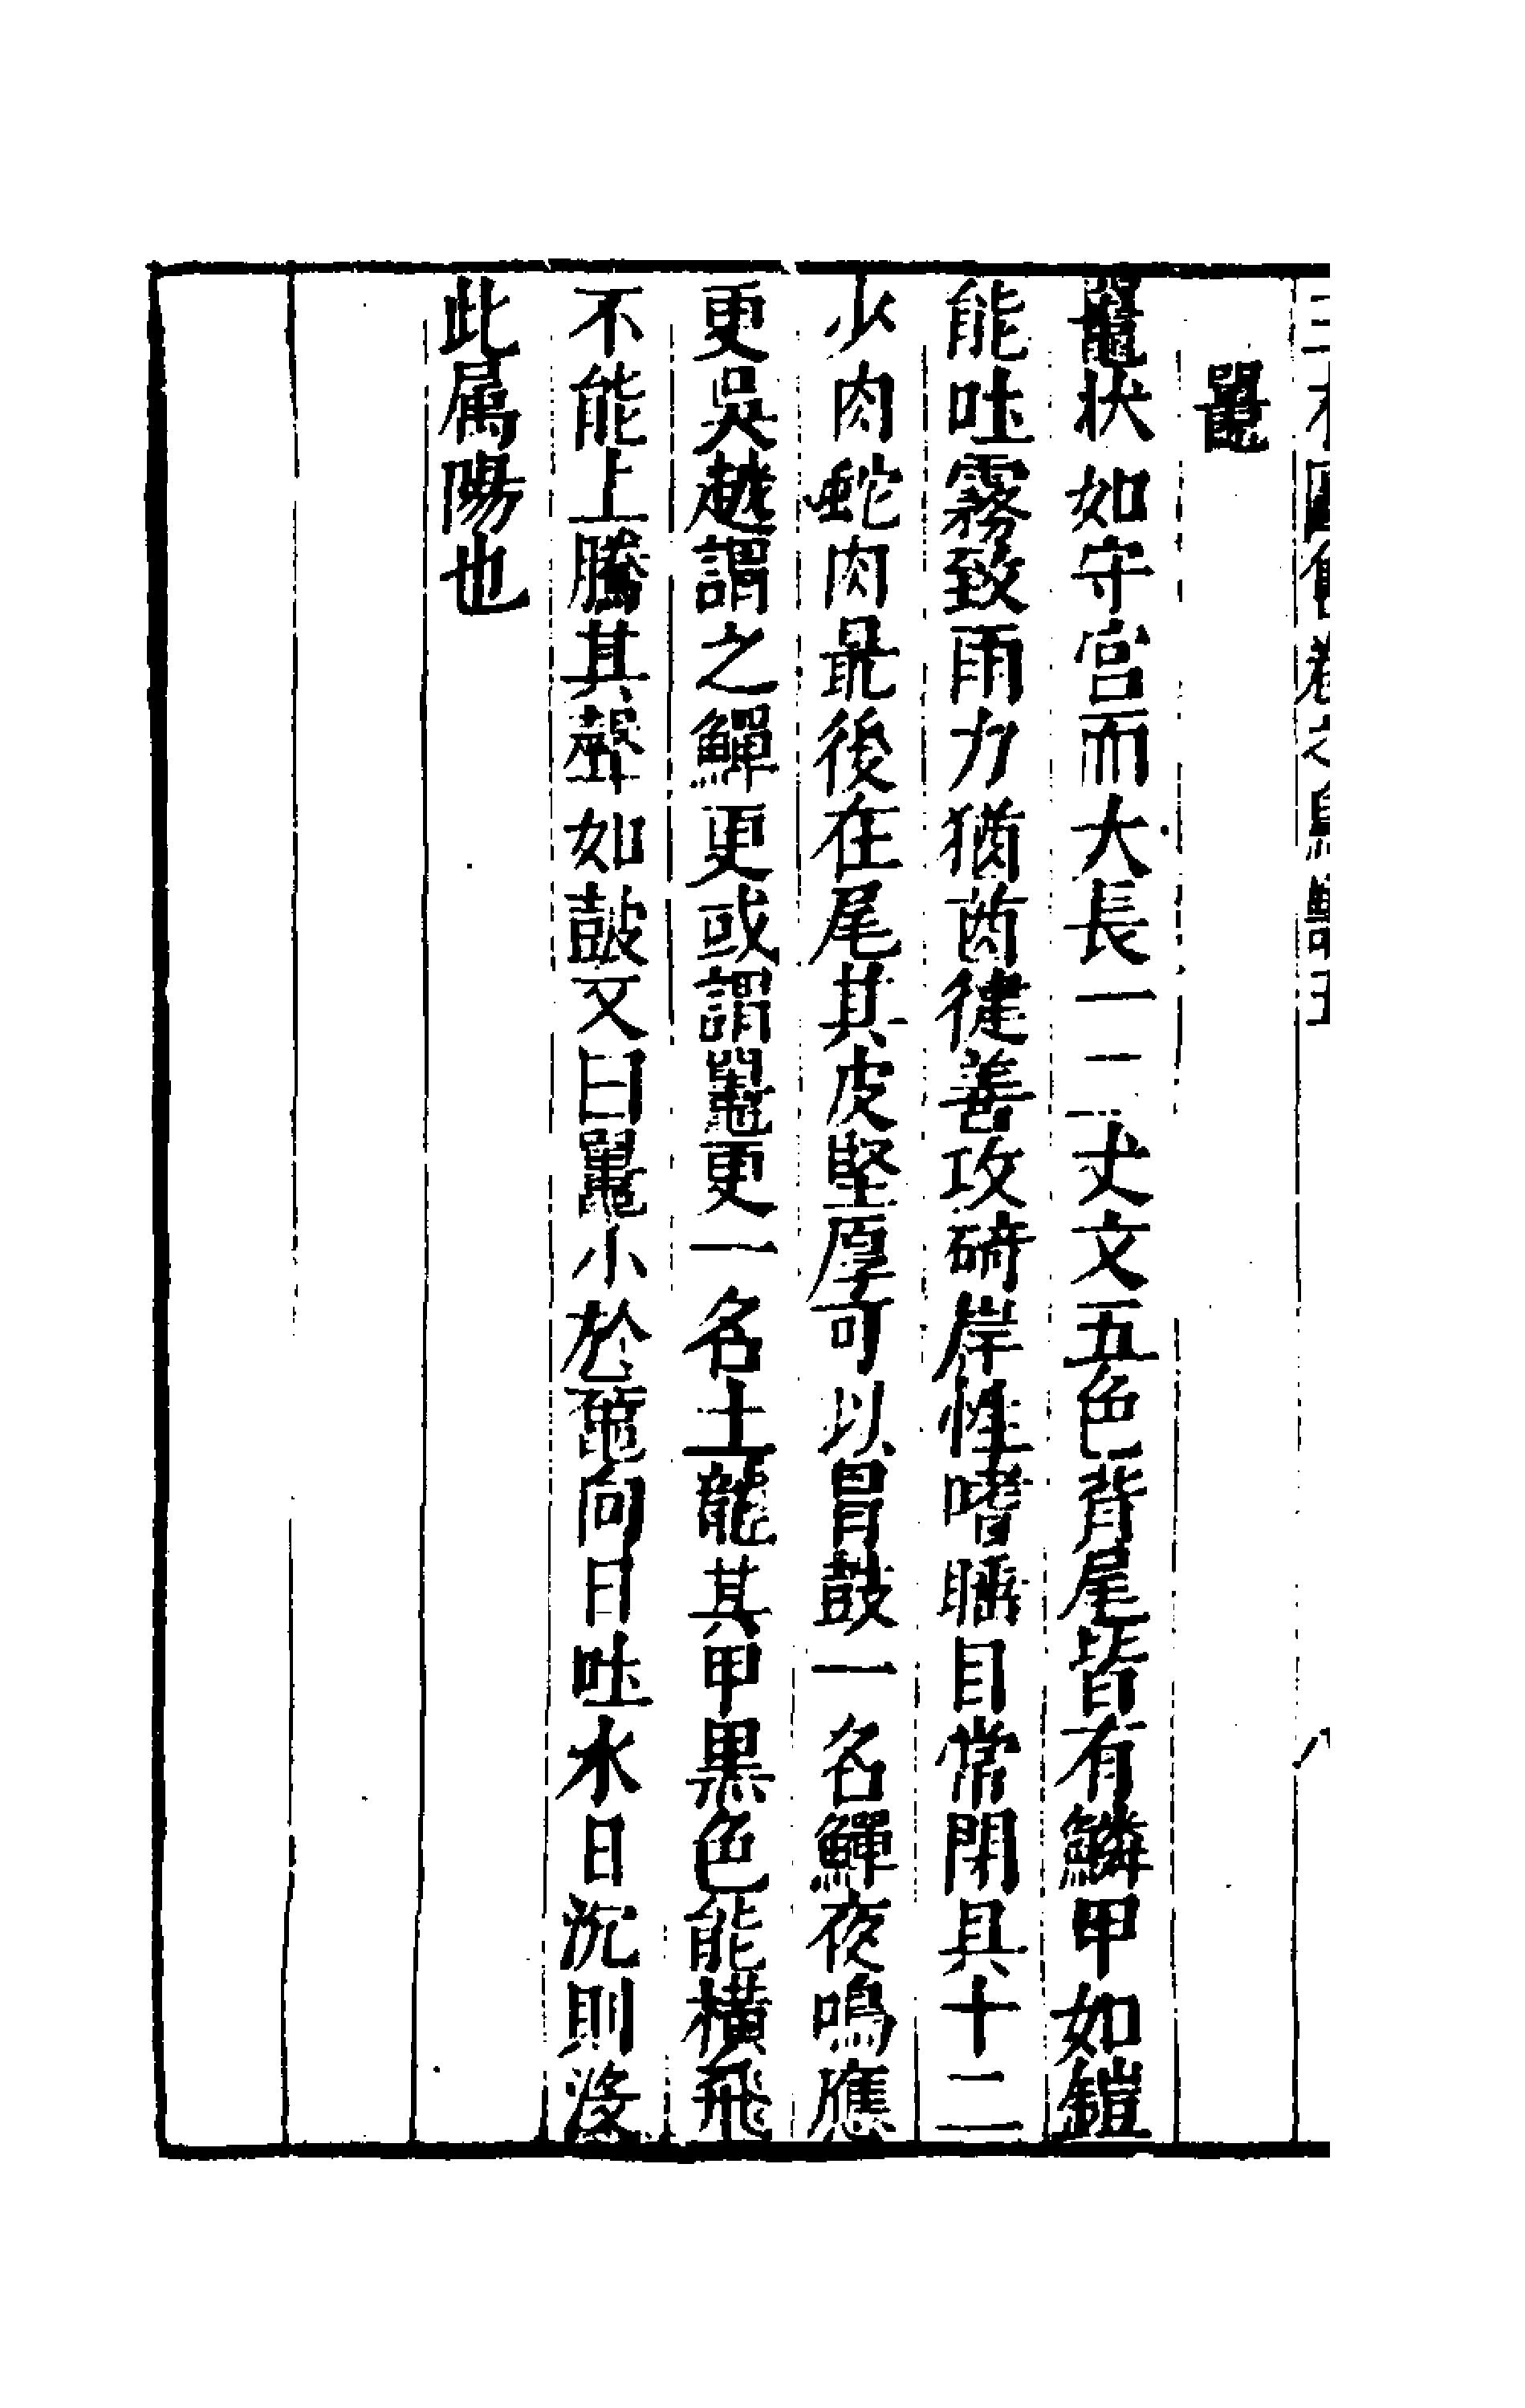 鼉
鼉狀如守宮而大長一二丈文五色背尾皆有鱗甲如鎧
能吐霧致雨力猶酋健善攻碕岸性嗜睡目常閉具十二
少肉蛇肉最後在尾其皮堅厚可以冒鼓一名鱓夜鳴應
更吳越謂之鱓更或謂鼉更一名土龍其甲黑色能橫飛
不能上騰其聲如鼓文曰鼉小於黿向日吐水日沉則沒
此属陽也